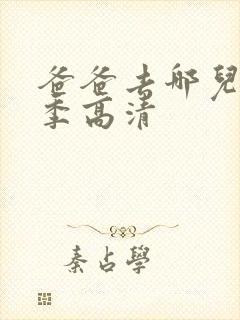 爸爸去哪兒
季高清
秦占學